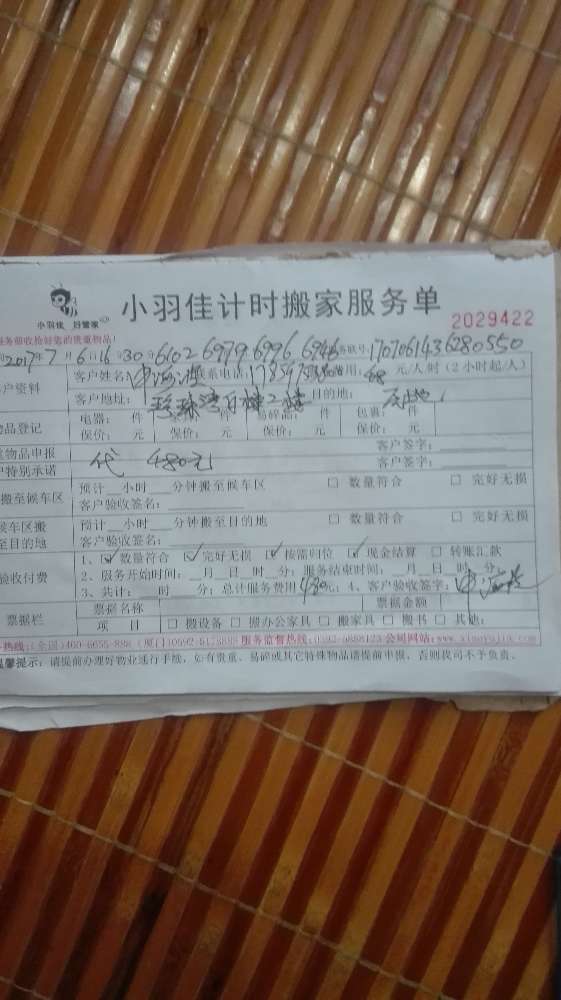 小羽佳 好管家
小羽佳计时搬家服务单
2029422
服务前收拾好您的贵重物品!
2017年7月6日16时30分6102 6979 6996 6946 客联号:1707061436280550
户资料 客户姓名: 联系电话: 费用:68元/人/时(2小时起/人)
客户地址: 珍珠湾百楼二楼 目的地:
物品登记 电器: 件 件 易碎品: 件 包裹: 件
保价: 元 保价: 元 保价: 元 保价: 元
物品申报 客户签字:
户特别承诺 代 480元 客户签字:
搬至候车区 预计__小时__分钟搬至候车区 □ 数量符合 □ 完好无损
客户验收签名:
候车区搬至目的地 预计__小时__分钟搬至目的地 □ 数量符合 □ 完好无损
客户验收签名:
验收付费 1、☑数量符合 ☑完好无损 ☑按需归位 ☑现金结算 □ 转账汇款
2、服务开始时间:__月__日__时__分;服务结束时间:__月__日__时__分;
3、共计:__时__分;总计服务费用480元;4、客户验收签字:
票据栏 票据名称 票据金额
项 目 □ 搬设备 □ 搬办公家具 □ 搬家具 □ 搬书 □ 其他:
热线:(全国)400-6655-888 (厦门)0592-5175888 服务监督热线:0592-5898123 公司网站:www.xiaoyujia.com
温馨提示:请提前办理好物业通行手续,如有贵重、易碎或其它特殊物品请提前申报,否则我司不予负责。